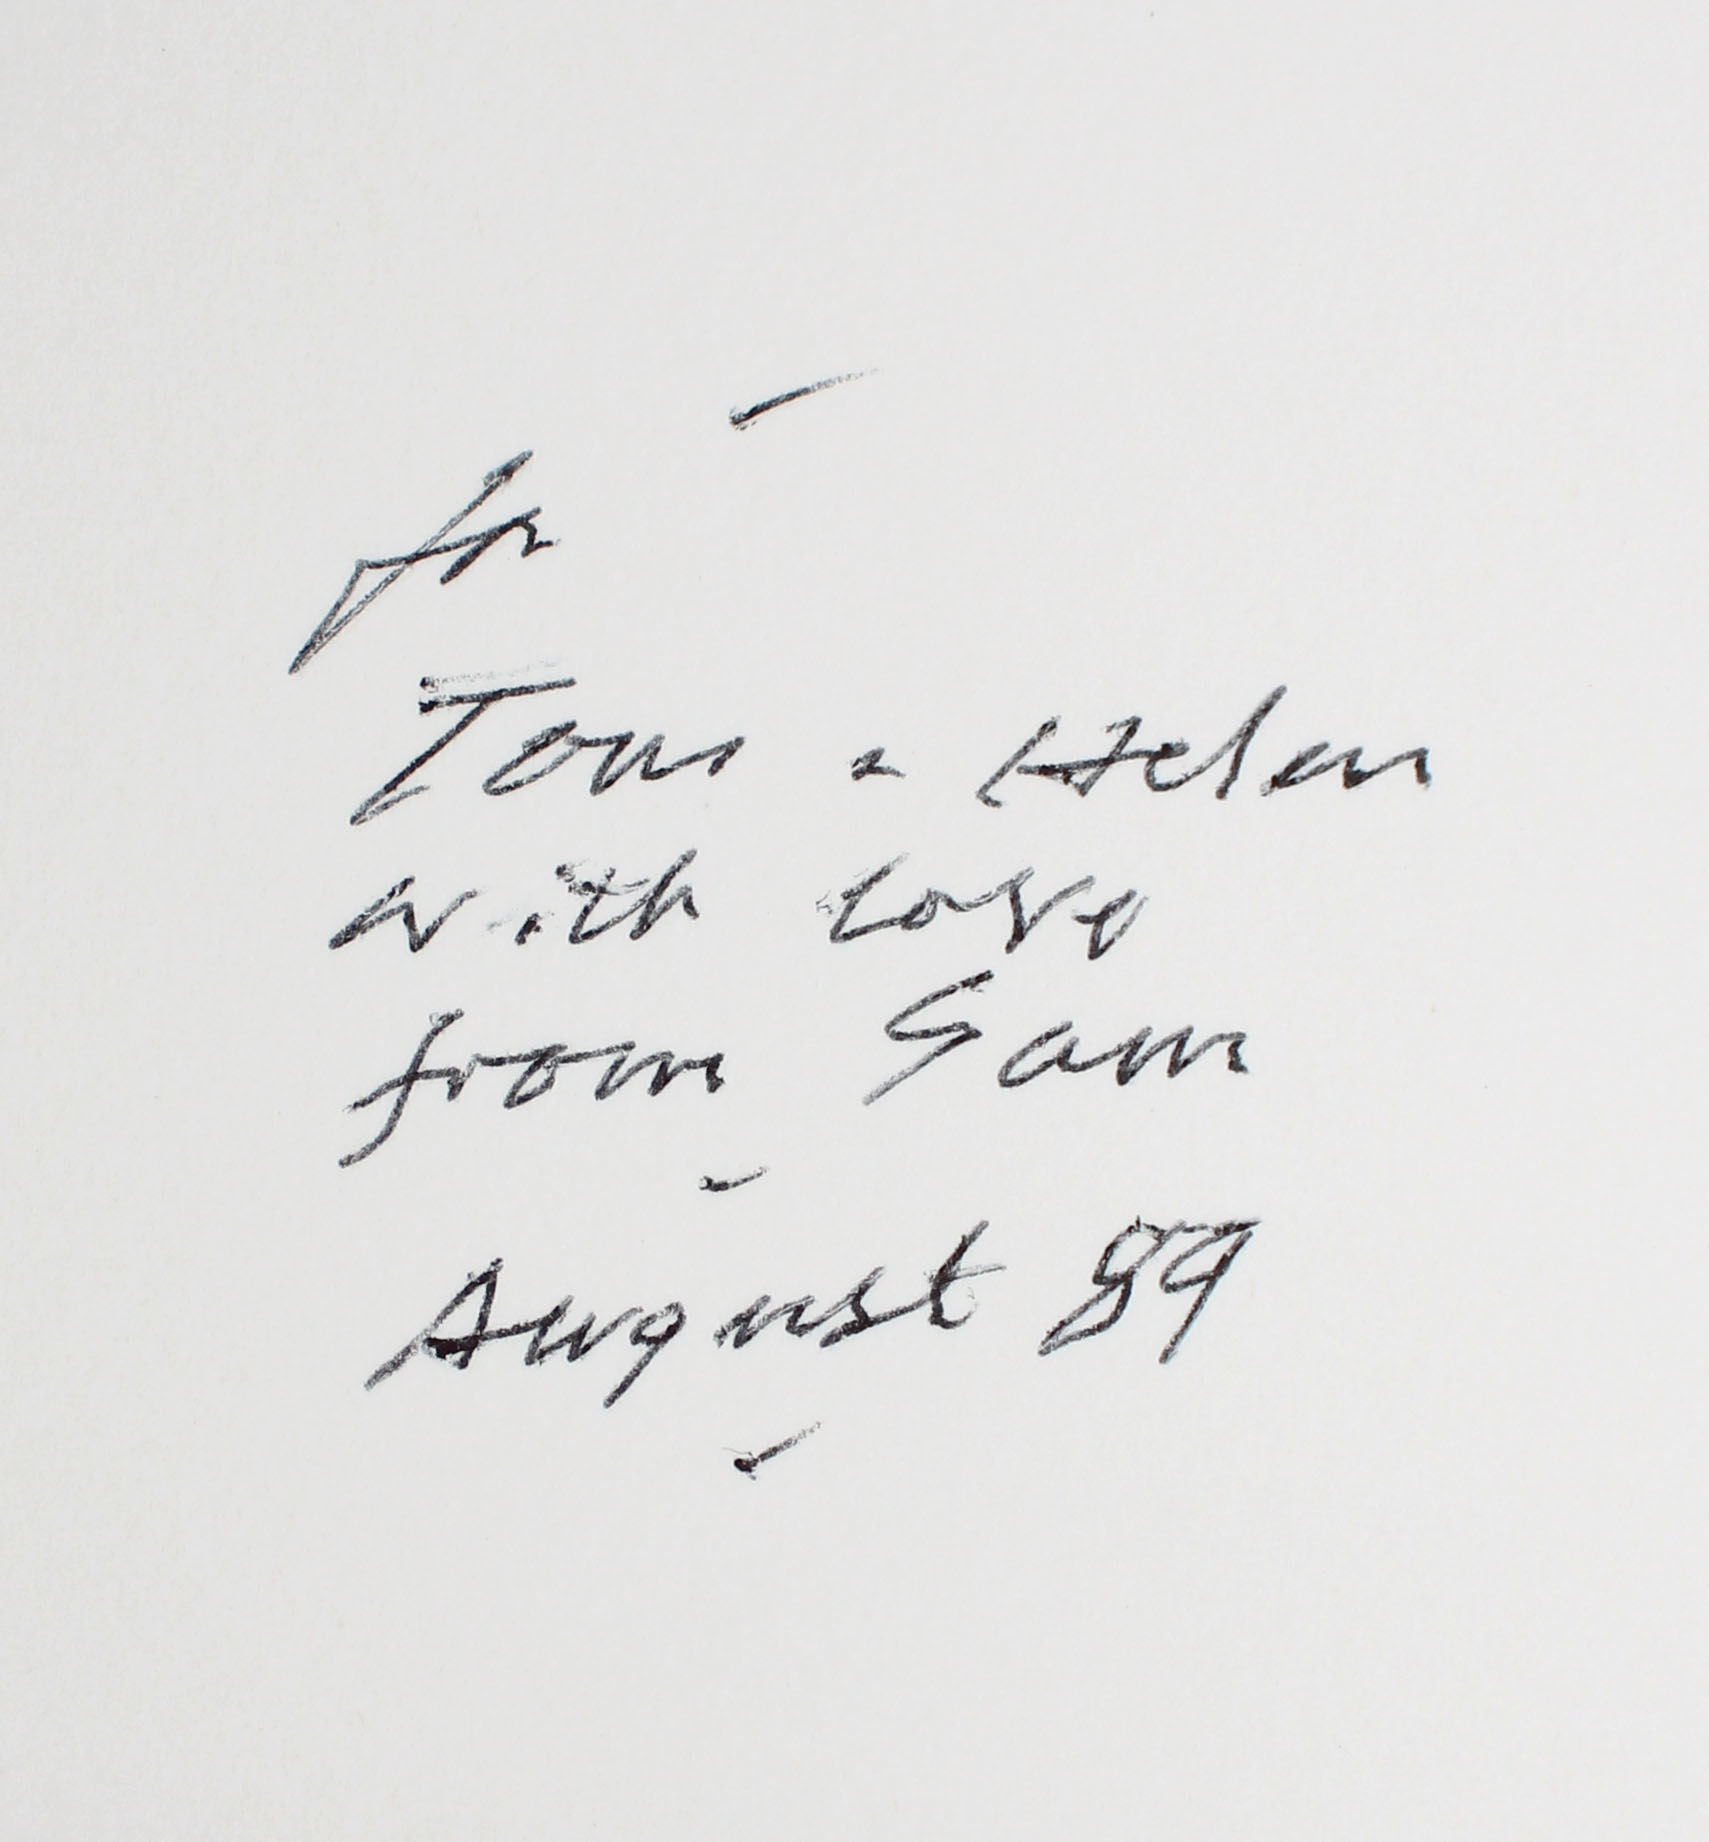 for
Tom & Helen
with love
from Sam
August 89